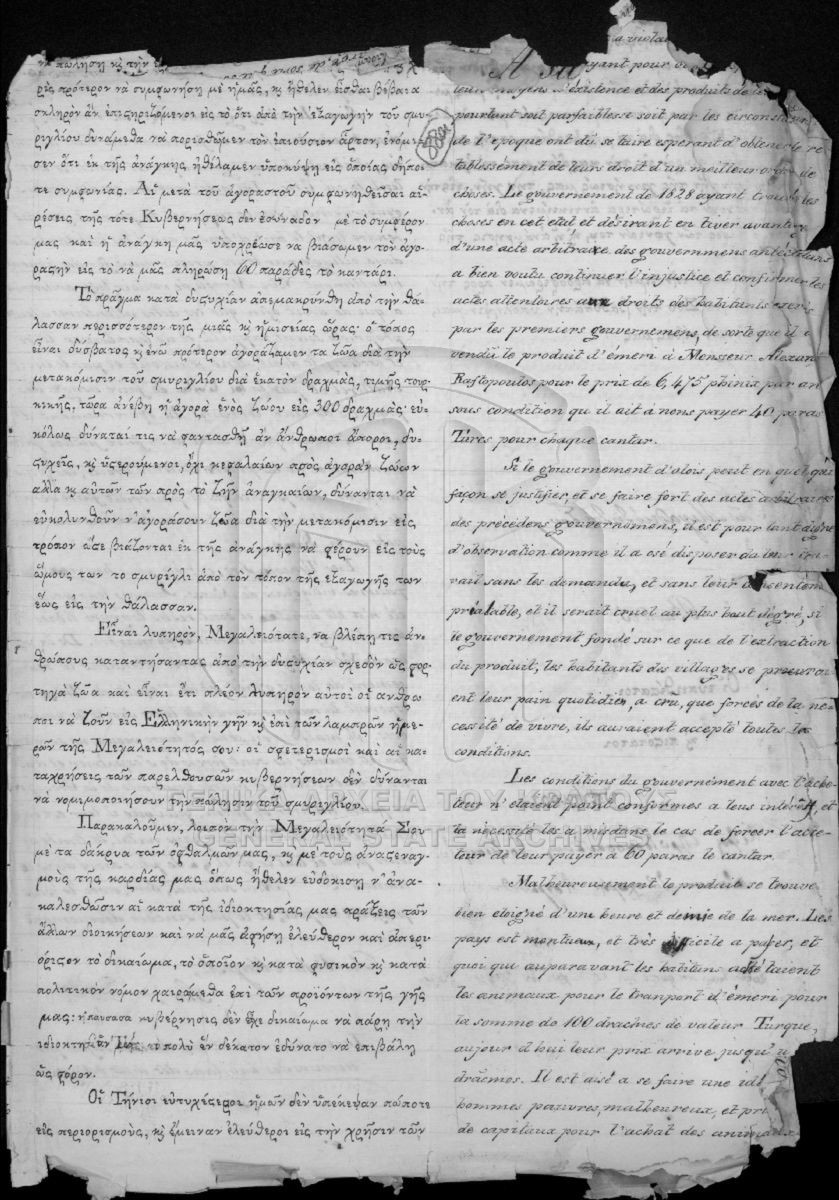 να πώληση κ̀ τὴν
ρὶς πρότερον νὰ συμφωνήσῃ μὲ ἡμᾶς, κ̀ ἤθελεν εἶσθαι βέβαια
σκληρὸν ἂν ἐπιςηριζόμενοι εἰς τὸ ὅτι ἀπὸ τὴν ἐξαγωγὴν τοῦ σμυ-
ριγλίου δυνάμεθα νὰ πορισθῶμεν τὸν ἐπιούσιον ἄρτον, ἐνόμι-
σεν ὅτι ἐκ τῆς ἀνάγκης ἠθέλαμεν ὑποκύψῃ εἰς ὁποίας δήπο-
τε συμφωνίας. Αἱ μετὰ τοῦ ἀγοραστοῦ συμφωνηθεῖσαι αἱ-
ρέσεις τῆς τότε Κυβερνήσεως δὲν ἐσύναδον μὲ τὸ συμφέρον
μας καὶ ἡ ἀνάγκη μᾶς ὑποχρέωσε νὰ βιάσωμεν τὸν ἀγο-
ραςὴν εἰς τὸ νὰ μᾶς πληρώσῃ 60 παράδες τὸ καντάρι.
Τὸ πρᾶγμα κατὰ δυςυχίαν ἀπεμακρύνθη ἀπὸ τὴν θά-
λασσαν περισσότερον τῆς μιᾶς κ̀ ἡμισείας ὥρας· ὁ τόπος
εἶναι δύσβατος κ̀ ἐνῶ πρότερον ἀγοράζαμεν τα ζῶα διὰ τὴν
μετακόμισιν τοῦ σμυριγλίου διὰ ἑκατὸν δραχμὰς, τιμῆς τουρ-
κικῆς, τώρα ἀνέβη ἡ ἀγορὰ ἑνὸς ζώου εἰς 300 δραχμὰς· εὐ-
κόλως δύναταί τις νὰ φαντασθῇ ἂν ἄνθρωποι ἄποροι, δυ-
ςυχεῖς, κ̀ ὑςερούμενοι, ὄχι κεφαλαίων πρὸς ἀγορὰν ζώων
αλλὰ κ̀ αὐτῶν τῶν πρὸς τὸ ζῆν ἀναγκαίων, δύνανται νὰ
εὐκολυνθοῦν ν' ἀγοράσουν ζῶα διὰ τὴν μετακόμισιν εἰς
τρόπον ὥςε βιάζονται ἐκ τῆς ἀνάγκης νὰ φέρουν εἰς τοὺς
ὤμους των το σμυρίγλι ἀπὸ τὸν τόπον τῆς ἐξαγωγῆς των
ἕως εἰς τὴν θάλασσαν.
Εἶναι λυπηρὸν, Μεγαλειότατε, να βλέπῃ τις ἀν-
θρώπους καταντήσαντας ἀπὸ τὴν δυςυχίαν σχεδὸν ὡς φορ-
τηγὰ ζῶα καὶ εἶναι ἔτι πλέον λυπηρὸν αὐτοὶ οἱ ανθρω
ποι νὰ ζοῦν εἰς Ἑλληνικὴν γῆν κ̀ ἐπὶ τῶν λαμπρῶν ἡμε-
ρῶν τῆς Μεγαλειότητός σου: οἱ σφετερισμοὶ καὶ αἱ κα-
ταχρήσεις τῶν παρελθουσῶν κυβερνήσεων δὲν δύνανται
νὰ νομιμοποιήσουν τὴν πώλησιν τοῦ σμυριγλίου.
Παρακαλοῦμεν, λοιπὸν τὴν Μεγαλειότητά Σου
μὲ τὰ δάκρυα τῶν ὀφθαλμῶν μας, κ̀ μὲ τοὺς ἀναςεναγ-
μοὺς τῆς καρδίας μας ὅπως ἤθελεν εὐδοκίσῃ ν' ἀνα-
καλεσθῶσιν αἱ κατὰ τῆς ἰδιοκτησίας μας πράξεις τῶν
ἄλλων διοικήσεων καὶ νὰ μᾶς ἀφήσῃ ἐλεύθερον καὶ ἀπερι-
όριςον τὸ δικαίωμα, τὸ ὁποῖον κ̀ κατὰ φυσικὸν κ̀ κατὰ
πολιτικὸν νόμον χαιρόμεθα ἐπὶ τῶν προϊόντων τῆς γῆς
μας: ἡ παροῦσα κυβέρνησις δὲν ἔχει δικαίωμα νὰ πάρῃ τὴν
ἰδιοκτησίαν τὸ πολὺ ἓν δέκατον ἐδύνατο νὰ ἐπιβάλῃ
ὡς φόρον.
Οἱ Τήνιοι εὐτυχέςεροι ἡμῶν δὲν ὑπέκυψαν πώποτε
εἰς περιορισμοὺς, κ̀ ἔμειναν ἐλεύθεροι εἰς τὴν χρῆσιν τῶν
ayant pour
leur moyens d'éxistence et des produits de
pourtant soit par faiblesse soit par les circonstan
de l'epoque ont dû se taire esperant d'obtenir le re
tablessément de leurs droit d'un meilleur ordre de
choses. Le gouvernement de 1828 ayant trouvé les
choses en cet etat et désirant en tiver avantage
d'une acte arbitraire des gouvernmens antécédans
a bien voulu continuer l'injustice et confirmer les
actes attentoires aux droits des habitants exercés
par les premiers gouvernemens, de sorte que il a
vendû le produit d'émeri à Monseur Alexant
Raftopoulos pour le prix de 6,475 phinix par an
sous condition qu il ait à nons payer 40 paras
Turcs pour chaque cantar.
Si le gouvernement d'alois peut en quelque
façon se justifier, et se faire fort des actes arbitraires
des précédens gouvernemens, il est pour tant digne
d'observation comme il a osé disposer du leur tra
vail sans les demander, et sans leur consentem
préalable, et il serait cruel au plus haut degré, si
le gouvernement fondé sur ce que de l'extraction
du produit, les habitants des villages se procurai
ent leur pain quotidien, a cru, que forcés de la ne-
cessité de vivre, ils auraient accepté toutes les
conditions.
Les conditions du gouvernement avec l'ache-
teur n'étaient point conformes a leus intérêt, et
la nécessité les a mis dans le cas de forcer l'ache-
teur de leur payer à 60 paras le cantar.
Malheureusement le produit se trouve
bien eloigné d'une heure et demie de la mer. Les
pays est montueux, et très difficile a passer, et
quoi qui auparavant les habitans achétaient
les animaux pour le tranport d'émeri pour
la somme do 100 drachmes de valeur Turque,
aujour d'hui leur prix arrive jusqu'
drácmes. Il est aisé a se faire une idé
hommes pauvres, malheureux, et pri
de capitaux pour l'achat des animaux
ΓΕΝΙΚΑ ΑΡΧΕΙΑ ΤΟΥ ΚΡΑΤΟΥΣ
GENERAL STATE ARCHIVES